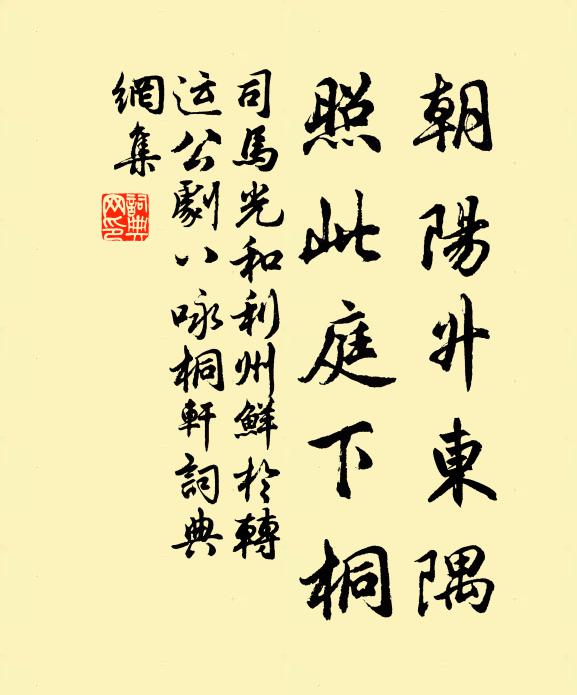 朝陽升東隅
照此庭下桐
司馬光和利州鮮於轉
运公劇八咏桐軒詞典
網集
詞典网印